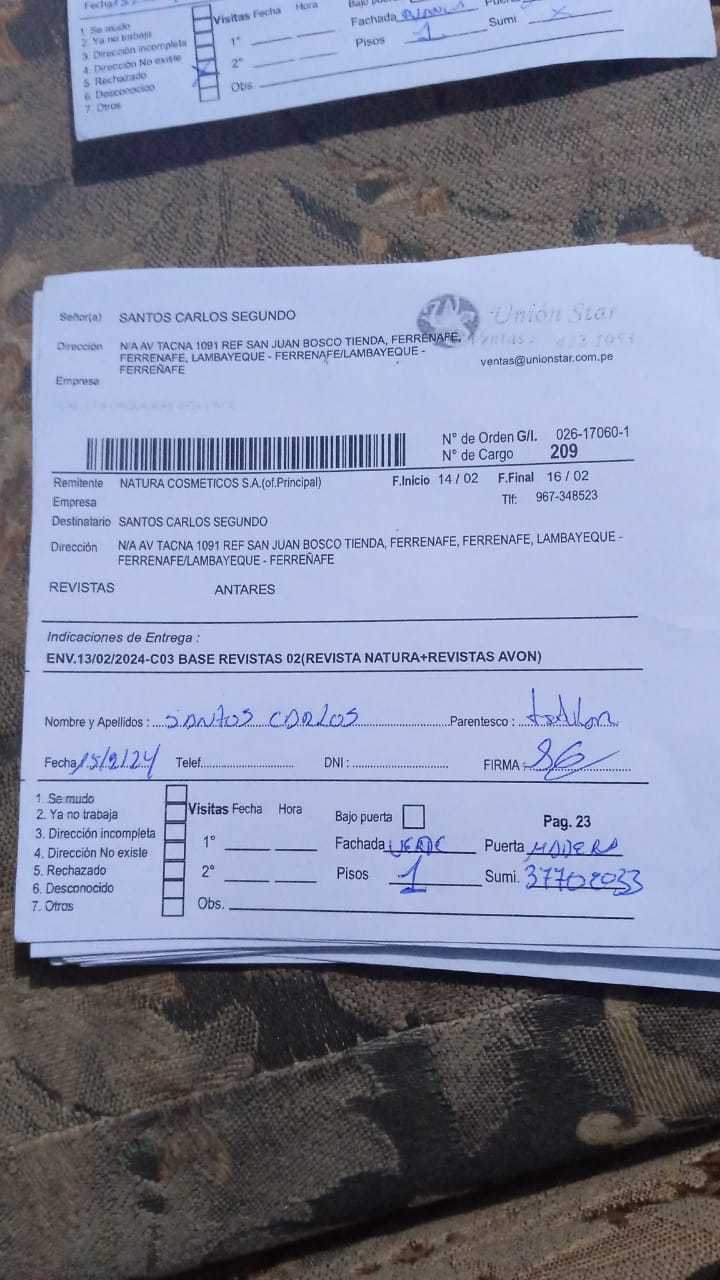 1. Se mudo
2. Ya no trabaja
3. Dirección incompleta
4. Dirección No existe
5. Rechazado
6. Desconocido
7. Otros
Visitas Fecha Hora
1°
2°
Obs.
Fachada BLANCO
Sumi x
Pisos 1
Señor(a) SANTOS CARLOS SEGUNDO
Unión Star
Dirección N/A AV TACNA 1091 REF SAN JUAN BOSCO TIENDA, FERRENAFE,
FERRENAFE, LAMBAYEQUE - FERRENAFE/LAMBAYEQUE -
FERREÑAFE
ventas@unionstar.com.pe
Empresa
N° de Orden G/I. 026-17060-1
N° de Cargo 209
Remitente NATURA COSMETICOS S.A.(of.Principal) F.Inicio 14 / 02 F.Final 16 / 02
Empresa Tlf: 967-348523
Destinatario SANTOS CARLOS SEGUNDO
Dirección N/A AV TACNA 1091 REF SAN JUAN BOSCO TIENDA, FERRENAFE, FERRENAFE, LAMBAYEQUE -
FERRENAFE/LAMBAYEQUE - FERREÑAFE
REVISTAS ANTARES
Indicaciones de Entrega :
ENV.13/02/2024-C03 BASE REVISTAS 02(REVISTA NATURA+REVISTAS AVON)
Nombre y Apellidos : SANTOS CARLOS Parentesco :
Fecha 15/2/24 Telef. DNI : FIRMA :
1. Se mudo
2. Ya no trabaja
3. Dirección incompleta
4. Dirección No existe
5. Rechazado
6. Desconocido
7. Otros
Visitas Fecha Hora
1°
2°
Obs.
Bajo puerta Pag. 23
Fachada VERDE Puerta MADERA
Pisos 1 Sumi. 37702033